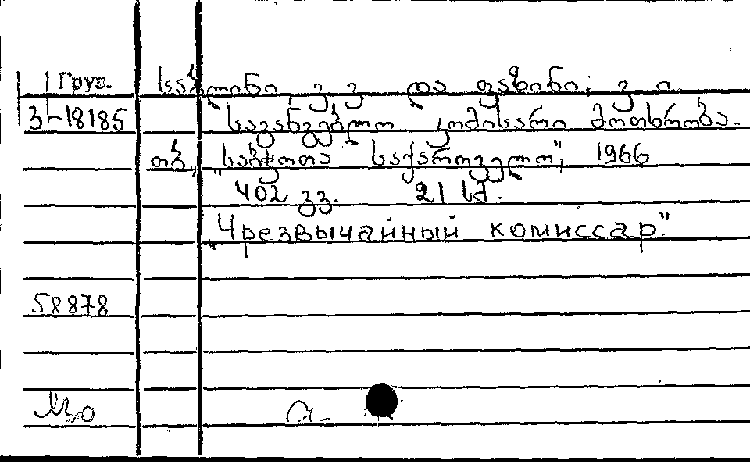 Груз. საპონი, ვ. ვ. და ფაზინი, ვ. ი.
3-18185 საგანგებო კომისარი მოთხრობა.
თბ., "საბჭოთა საქართველო", 1966
402 გვ. 21 სმ.
"Чрезвычайный комиссар."
58878